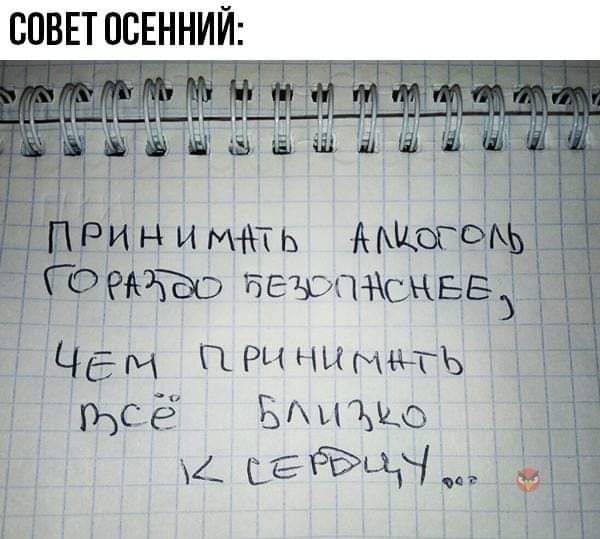 СОВЕТ ОСЕННИЙ:
ПРИНИМАТЬ АЛКОГОЛЬ
ГОРАЗДО БЕЗОПАСНЕЕ,
ЧЕМ ПРИНИМАТЬ
ВСЁ БЛИЗКО
К СЕРДЦУ...